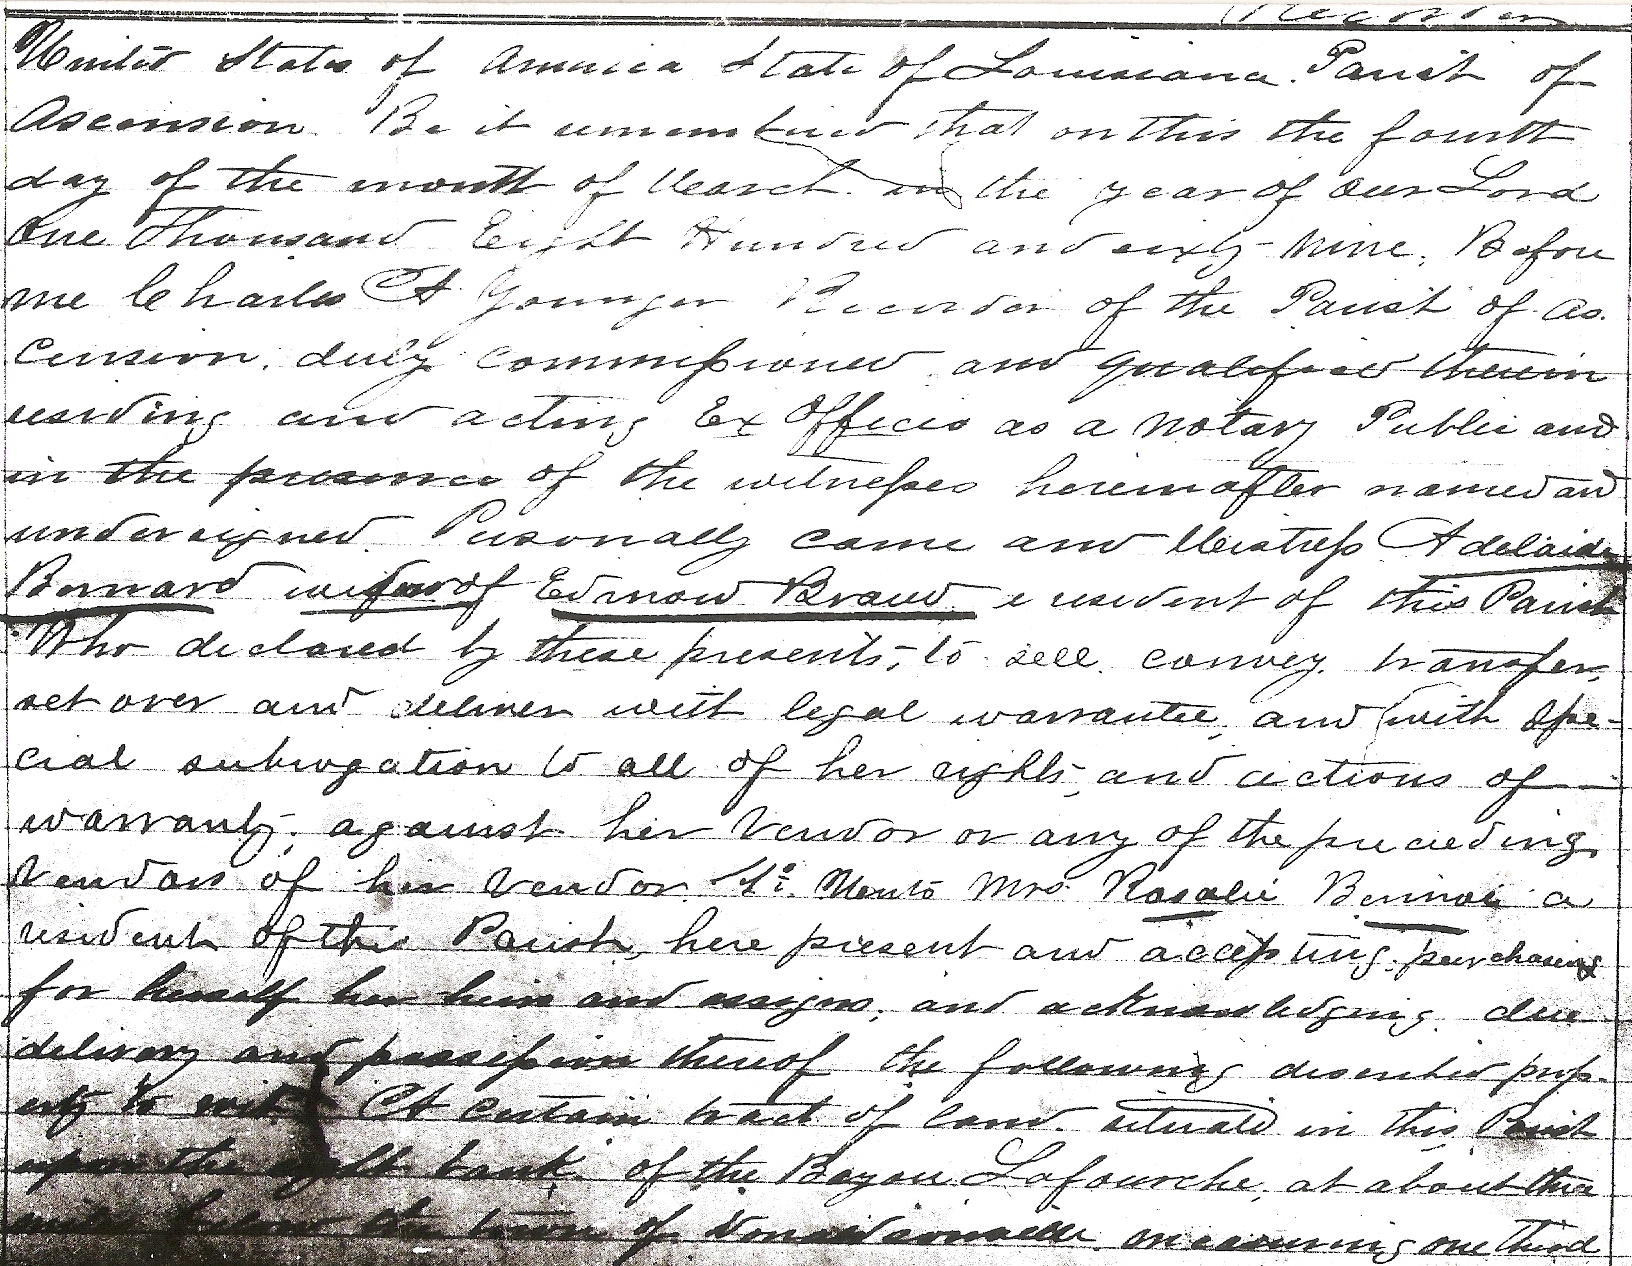 Recorder
United States of America State of Louisiana. Parish of
Ascension. Be it remembered that on this the fourth
day of the month of March in the year of Our Lord
One Thousand Eight Hundred and sixty-nine, Before
me Charles A Younger Recorder of the Parish of As-
cension, duly commissioned and qualified therein
residing and acting Ex Officio as a Notary Public and
in the presence of the witnesses hereinafter named and
undersigned. Personally came and Mistress Adelaide
Bernard widow of Edmond Braud, a resident of this Parish
Who declared by these presents, to sell, convey, transfer,
set over and deliver with legal warrantee, and with Spe-
cial subrogation to all of her rights, and actions of
warranty, against her Vendor or any of the preceding
Vendors of her Vendor. Mrs. Rosalie a
resident of this Parish, here present and accepting, purchasing
for herself her heirs and assigns, and acknowledging due
delivery and possession thereof the following described prop-
erty to wit. A certain tract of land situated in this Parish
upon the right bank of the Bayou Lafourche, at about three
miles below the town of Donaldsonville measuring one third